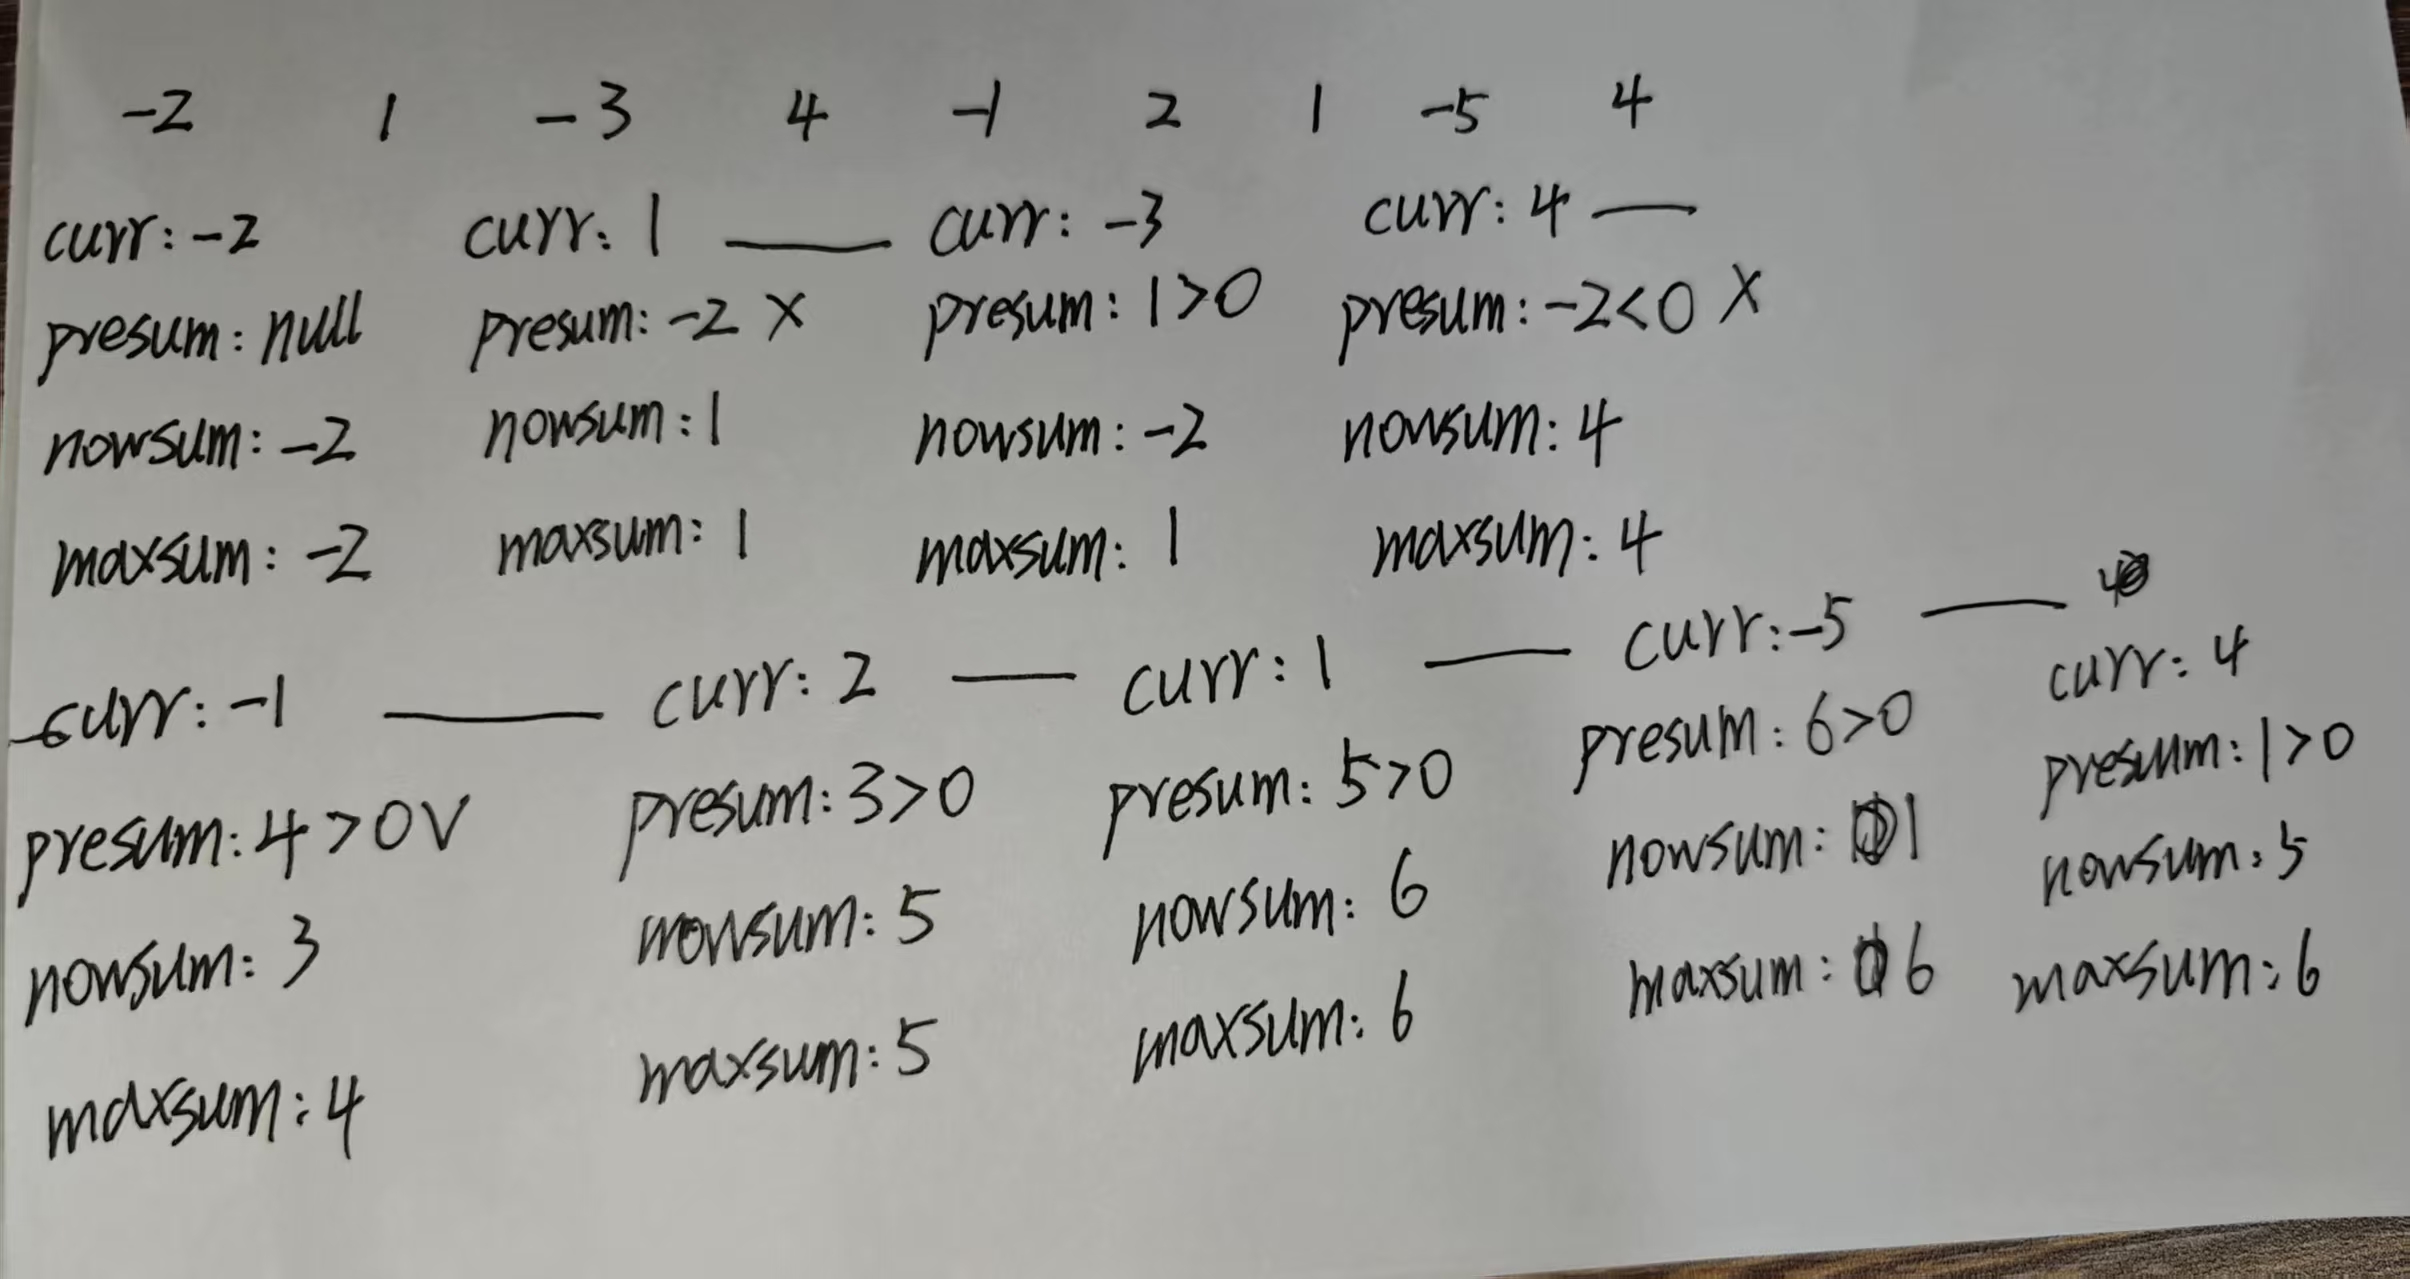 -2 1 -3 4 -1 2 1 -5 4
curr: -2 curr: 1 — curr: -3 curr: 4 —
presum: null presum: -2 X presum: 1>0 presum: -2<0 X
nowsum: -2 nowsum: 1 nowsum: -2 nowsum: 4
maxsum: -2 maxsum: 1 maxsum: 1 maxsum: 4
curr: -1 — curr: 2 — curr: 1 — curr: -5 — curr: 4
presum: 4>0 V presum: 3>0 presum: 5>0 presum: 6>0 presum: 1>0
nowsum: 3 nowsum: 5 nowsum: 6 nowsum: 1 nowsum: 5
maxsum: 4 maxsum: 5 maxsum: 6 maxsum: 6 maxsum: 6